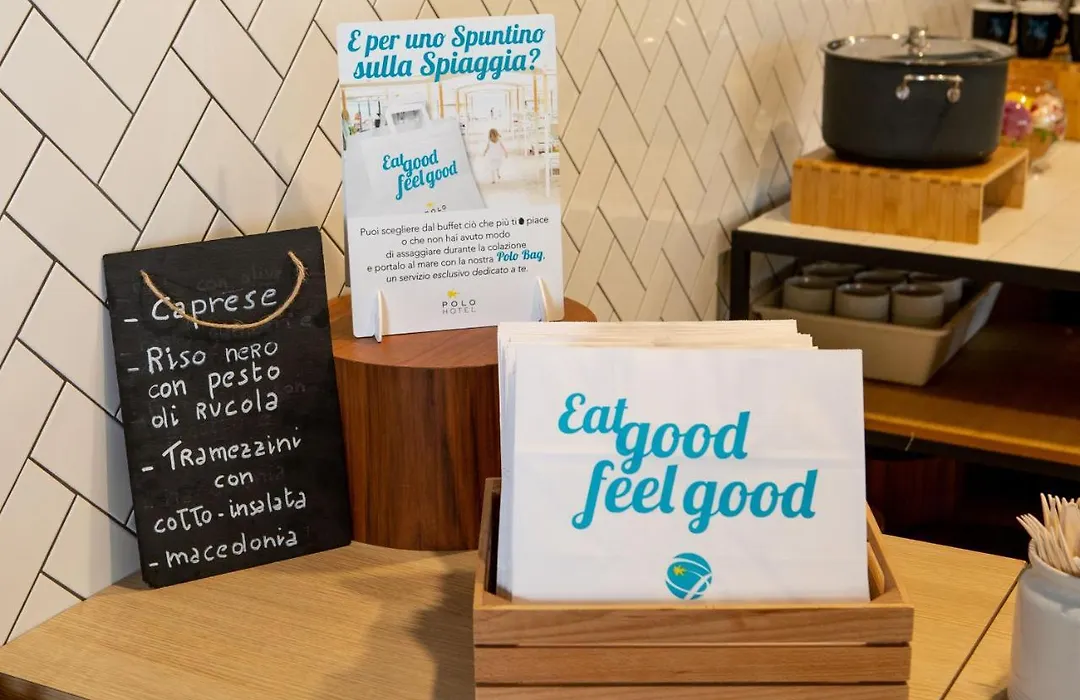 E per uno Spuntino
sulla Spiaggia?
Eat
good
feel
good
POLO
Puoi scegliere dal buffet ciò che più ti piace
o che non hai avuto modo
di assaggiare durante la colazione
e portalo al mare con la nostra Polo Bag,
un servizio esclusivo dedicato a te.
POLO
HOTEL
- Caprese
- Riso nero
con pesto
di RUCOLA
- Tramezzini
con
cotto-insalata
- macedonia
Eat
good
feel good